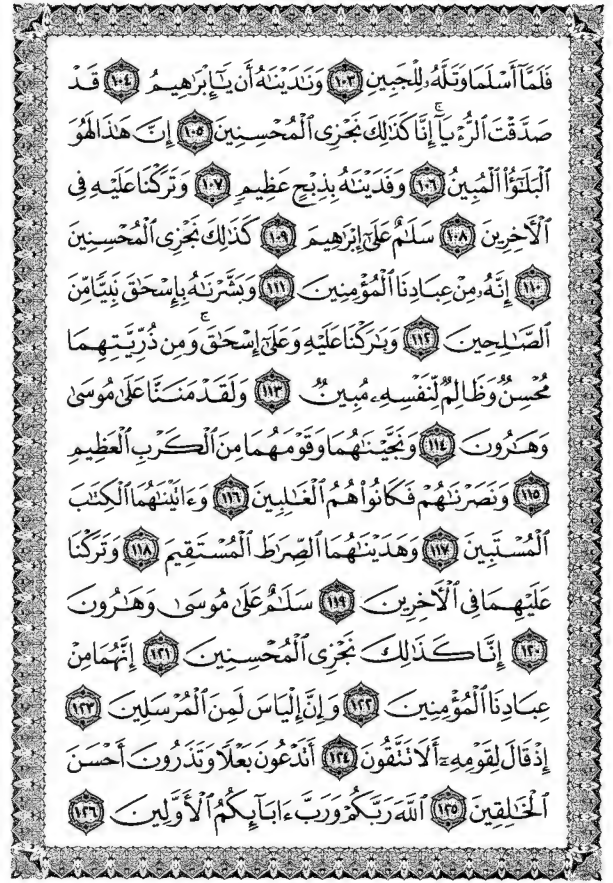 فَلَمَّآ أَسْلَمَا وَتَلَّهُۥ لِلْجَبِينِ ١٠٣ وَنَـٰدَيْنَـٰهُ أَن يَـٰٓإِبْرَٰهِيمُ ١٠٤ قَدْ
صَدَّقْتَ ٱلرُّءْيَآ ۚ إِنَّا كَذَٰلِكَ نَجْزِى ٱلْمُحْسِنِينَ ١٠٥ إِنَّ هَـٰذَا لَهُوَ
ٱلْبَلَـٰٓؤُا۟ ٱلْمُبِينُ ١٠٦ وَفَدَيْنَـٰهُ بِذِبْحٍ عَظِيمٍ ١٠٧ وَتَرَكْنَا عَلَيْهِ فِى
ٱلْـَٔاخِرِينَ ١٠٨ سَلَـٰمٌ عَلَىٰٓ إِبْرَٰهِيمَ ١٠٩ كَذَٰلِكَ نَجْزِى ٱلْمُحْسِنِينَ
١١٠ إِنَّهُۥ مِنْ عِبَادِنَا ٱلْمُؤْمِنِينَ ١١١ وَبَشَّرْنَـٰهُ بِإِسْحَـٰقَ نَبِيًّا مِّنَ
ٱلصَّـٰلِحِينَ ١١٢ وَبَـٰرَكْنَا عَلَيْهِ وَعَلَىٰٓ إِسْحَـٰقَ ۚ وَمِن ذُرِّيَّتِهِمَا
مُحْسِنٌ وَظَالِمٌ لِّنَفْسِهِۦ مُبِينٌ ١١٣ وَلَقَدْ مَنَنَّا عَلَىٰ مُوسَىٰ
وَهَـٰرُونَ ١١٤ وَنَجَّيْنَـٰهُمَا وَقَوْمَهُمَا مِنَ ٱلْكَرْبِ ٱلْعَظِيمِ
١١٥ وَنَصَرْنَـٰهُمْ فَكَانُوا۟ هُمُ ٱلْغَـٰلِبِينَ ١١٦ وَءَاتَيْنَـٰهُمَا ٱلْكِتَـٰبَ
ٱلْمُسْتَبِينَ ١١٧ وَهَدَيْنَـٰهُمَا ٱلصِّرَٰطَ ٱلْمُسْتَقِيمَ ١١٨ وَتَرَكْنَا
عَلَيْهِمَا فِى ٱلْـَٔاخِرِينَ ١١٩ سَلَـٰمٌ عَلَىٰ مُوسَىٰ وَهَـٰرُونَ
١٢٠ إِنَّا كَذَٰلِكَ نَجْزِى ٱلْمُحْسِنِينَ ١٢١ إِنَّهُمَا مِنْ
عِبَادِنَا ٱلْمُؤْمِنِينَ ١٢٢ وَإِنَّ إِلْيَاسَ لَمِنَ ٱلْمُرْسَلِينَ ١٢٣
إِذْ قَالَ لِقَوْمِهِۦٓ أَلَا تَتَّقُونَ ١٢٤ أَتَدْعُونَ بَعْلًا وَتَذَرُونَ أَحْسَنَ
ٱلْخَـٰلِقِينَ ١٢٥ ٱللَّهَ رَبَّكُمْ وَرَبَّ ءَابَآئِكُمُ ٱلْأَوَّلِينَ ١٢٦